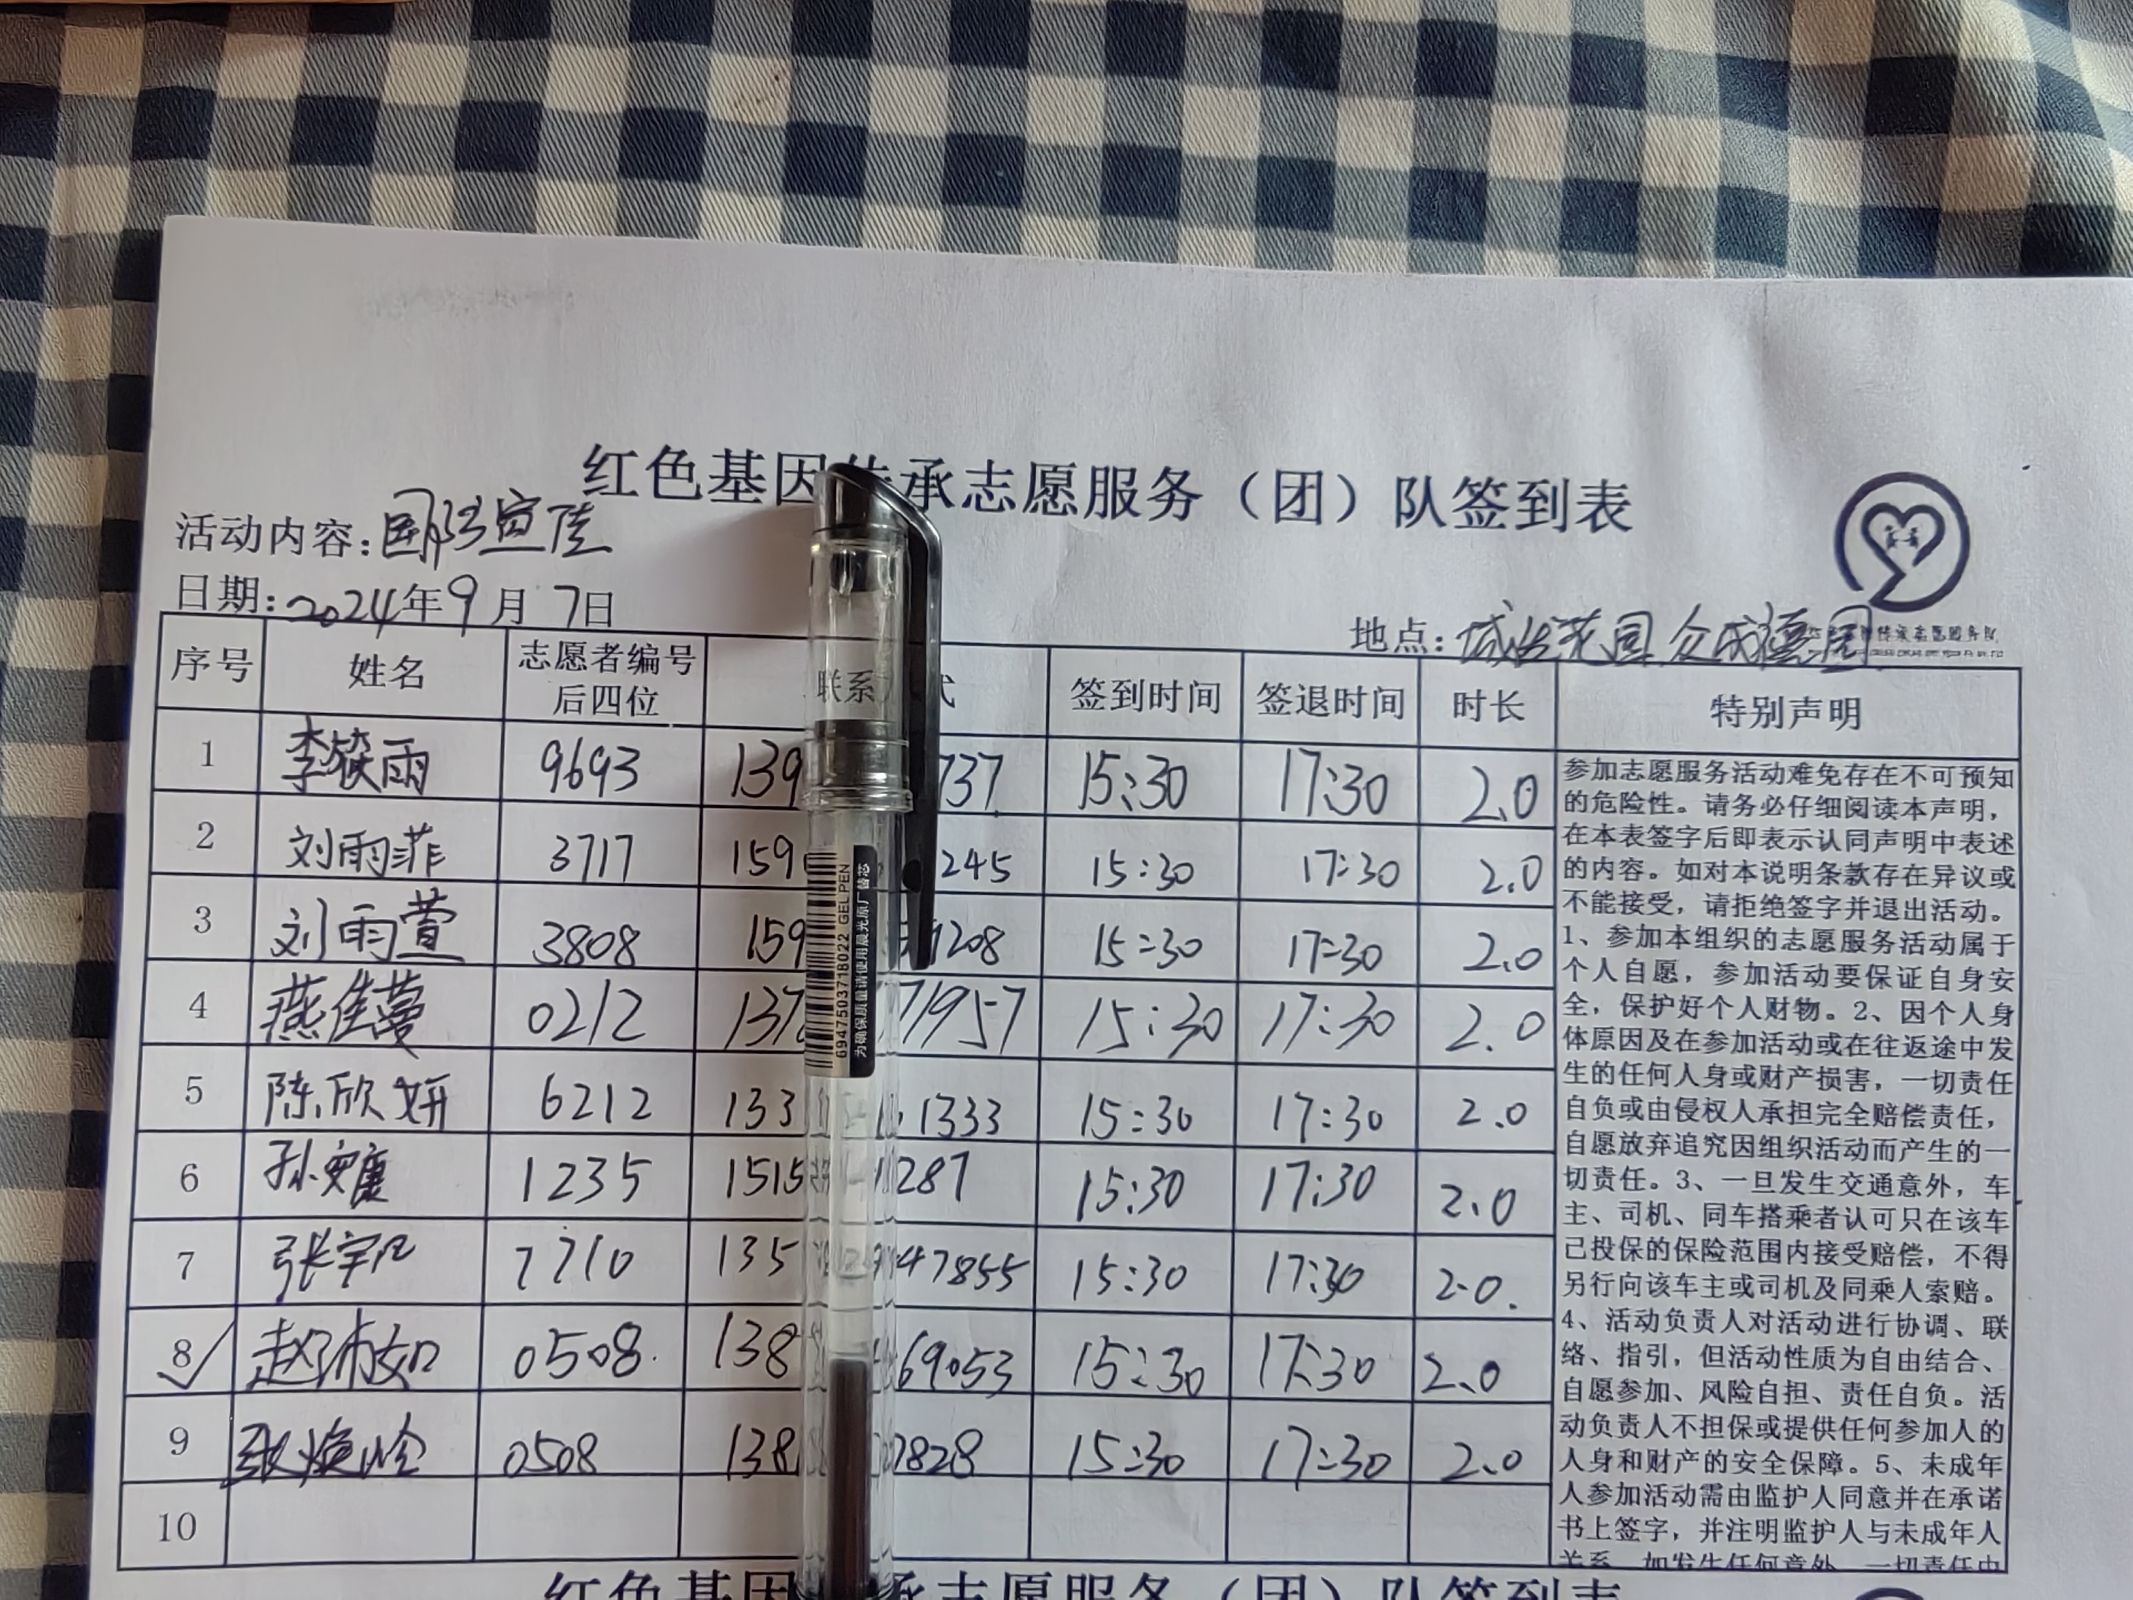 红色基因传承志愿服务（团）队签到表
活动内容：国防宣传
日期：2024年9月7日
地点：
序号 姓名 志愿者编号后四位 联系 式 签到时间 签退时间 时长 特别声明
1 李筱雨 9693 139 737 15:30 17:30 2.0
2 刘雨菲 3717 159 245 15:30 17:30 2.0
3 刘雨萱 3808 159 1208 15:30 17:30 2.0
4 燕佳蔓 0212 137 71957 15:30 17:30 2.0
5 陈欣妍 6212 133 1333 15:30 17:30 2.0
6 孙 1235 1515 287 15:30 17:30 2.0
7 张宇凡 7710 135 47855 15:30 17:30 2.0
8 赵沛如 0508 138 69053 15:30 17:30 2.0
9 0508 138 7828 15:30 17:30 2.0
10
参加志愿服务活动难免存在不可预知
的危险性。请务必仔细阅读本声明，
在本表签字后即表示认同声明中表述
的内容。如对本说明条款存在异议或
不能接受，请拒绝签字并退出活动。
1、参加本组织的志愿服务活动属于
个人自愿，参加活动要保证自身安
全，保护好个人财物。2、因个人身
体原因及在参加活动或在往返途中发
生的任何人身或财产损害，一切责任
自负或由侵权人承担完全赔偿责任，
自愿放弃追究因组织活动而产生的一
切责任。3、一旦发生交通意外，车
主、司机、同车搭乘者认可只在该车
已投保的保险范围内接受赔偿，不得
另行向该车主或司机及同乘人索赔。
4、活动负责人对活动进行协调、联
络、指引，但活动性质为自由结合、
自愿参加、风险自担、责任自负。活
动负责人不担保或提供任何参加人的
人身和财产的安全保障。5、未成年
人参加活动需由监护人同意并在承诺
书上签字，并注明监护人与未成年人
关系，如发生任何意外，一切责任由
6947503718022 GEL PEN
为确保质量请使用晨光原厂替芯
红色基因 承志愿服务（团）队签到表